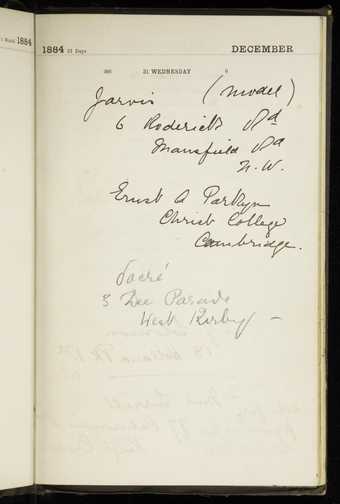 1884
1884 31 Days DECEMBER
366 31 WEDNESDAY
Jarvis (model)
6 Roderick Rd
Mansfield Rd
N.W.
Ernst A Parkyn
Christ College
Cambridge.
Sacré
3 Dee Parade
West Kirby –